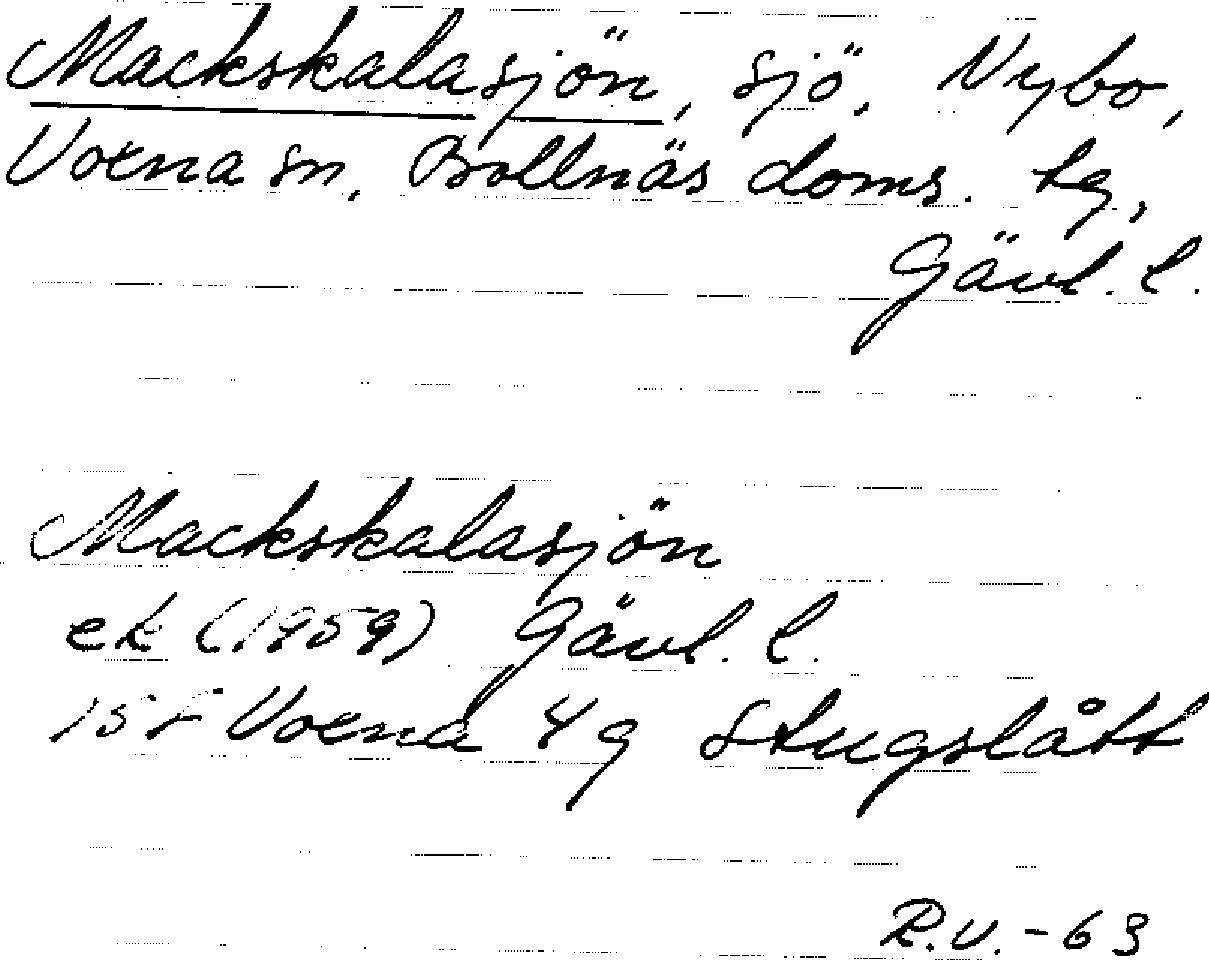 Mackskalasjön, sjö, Nybo,
Voxna sn, Bollnäs doms. tg,
Gävl. l.
Mackskalasjön
ek (1959) Gävl. l.
15 F Voxna 4 g Stugslått
R.V.-63